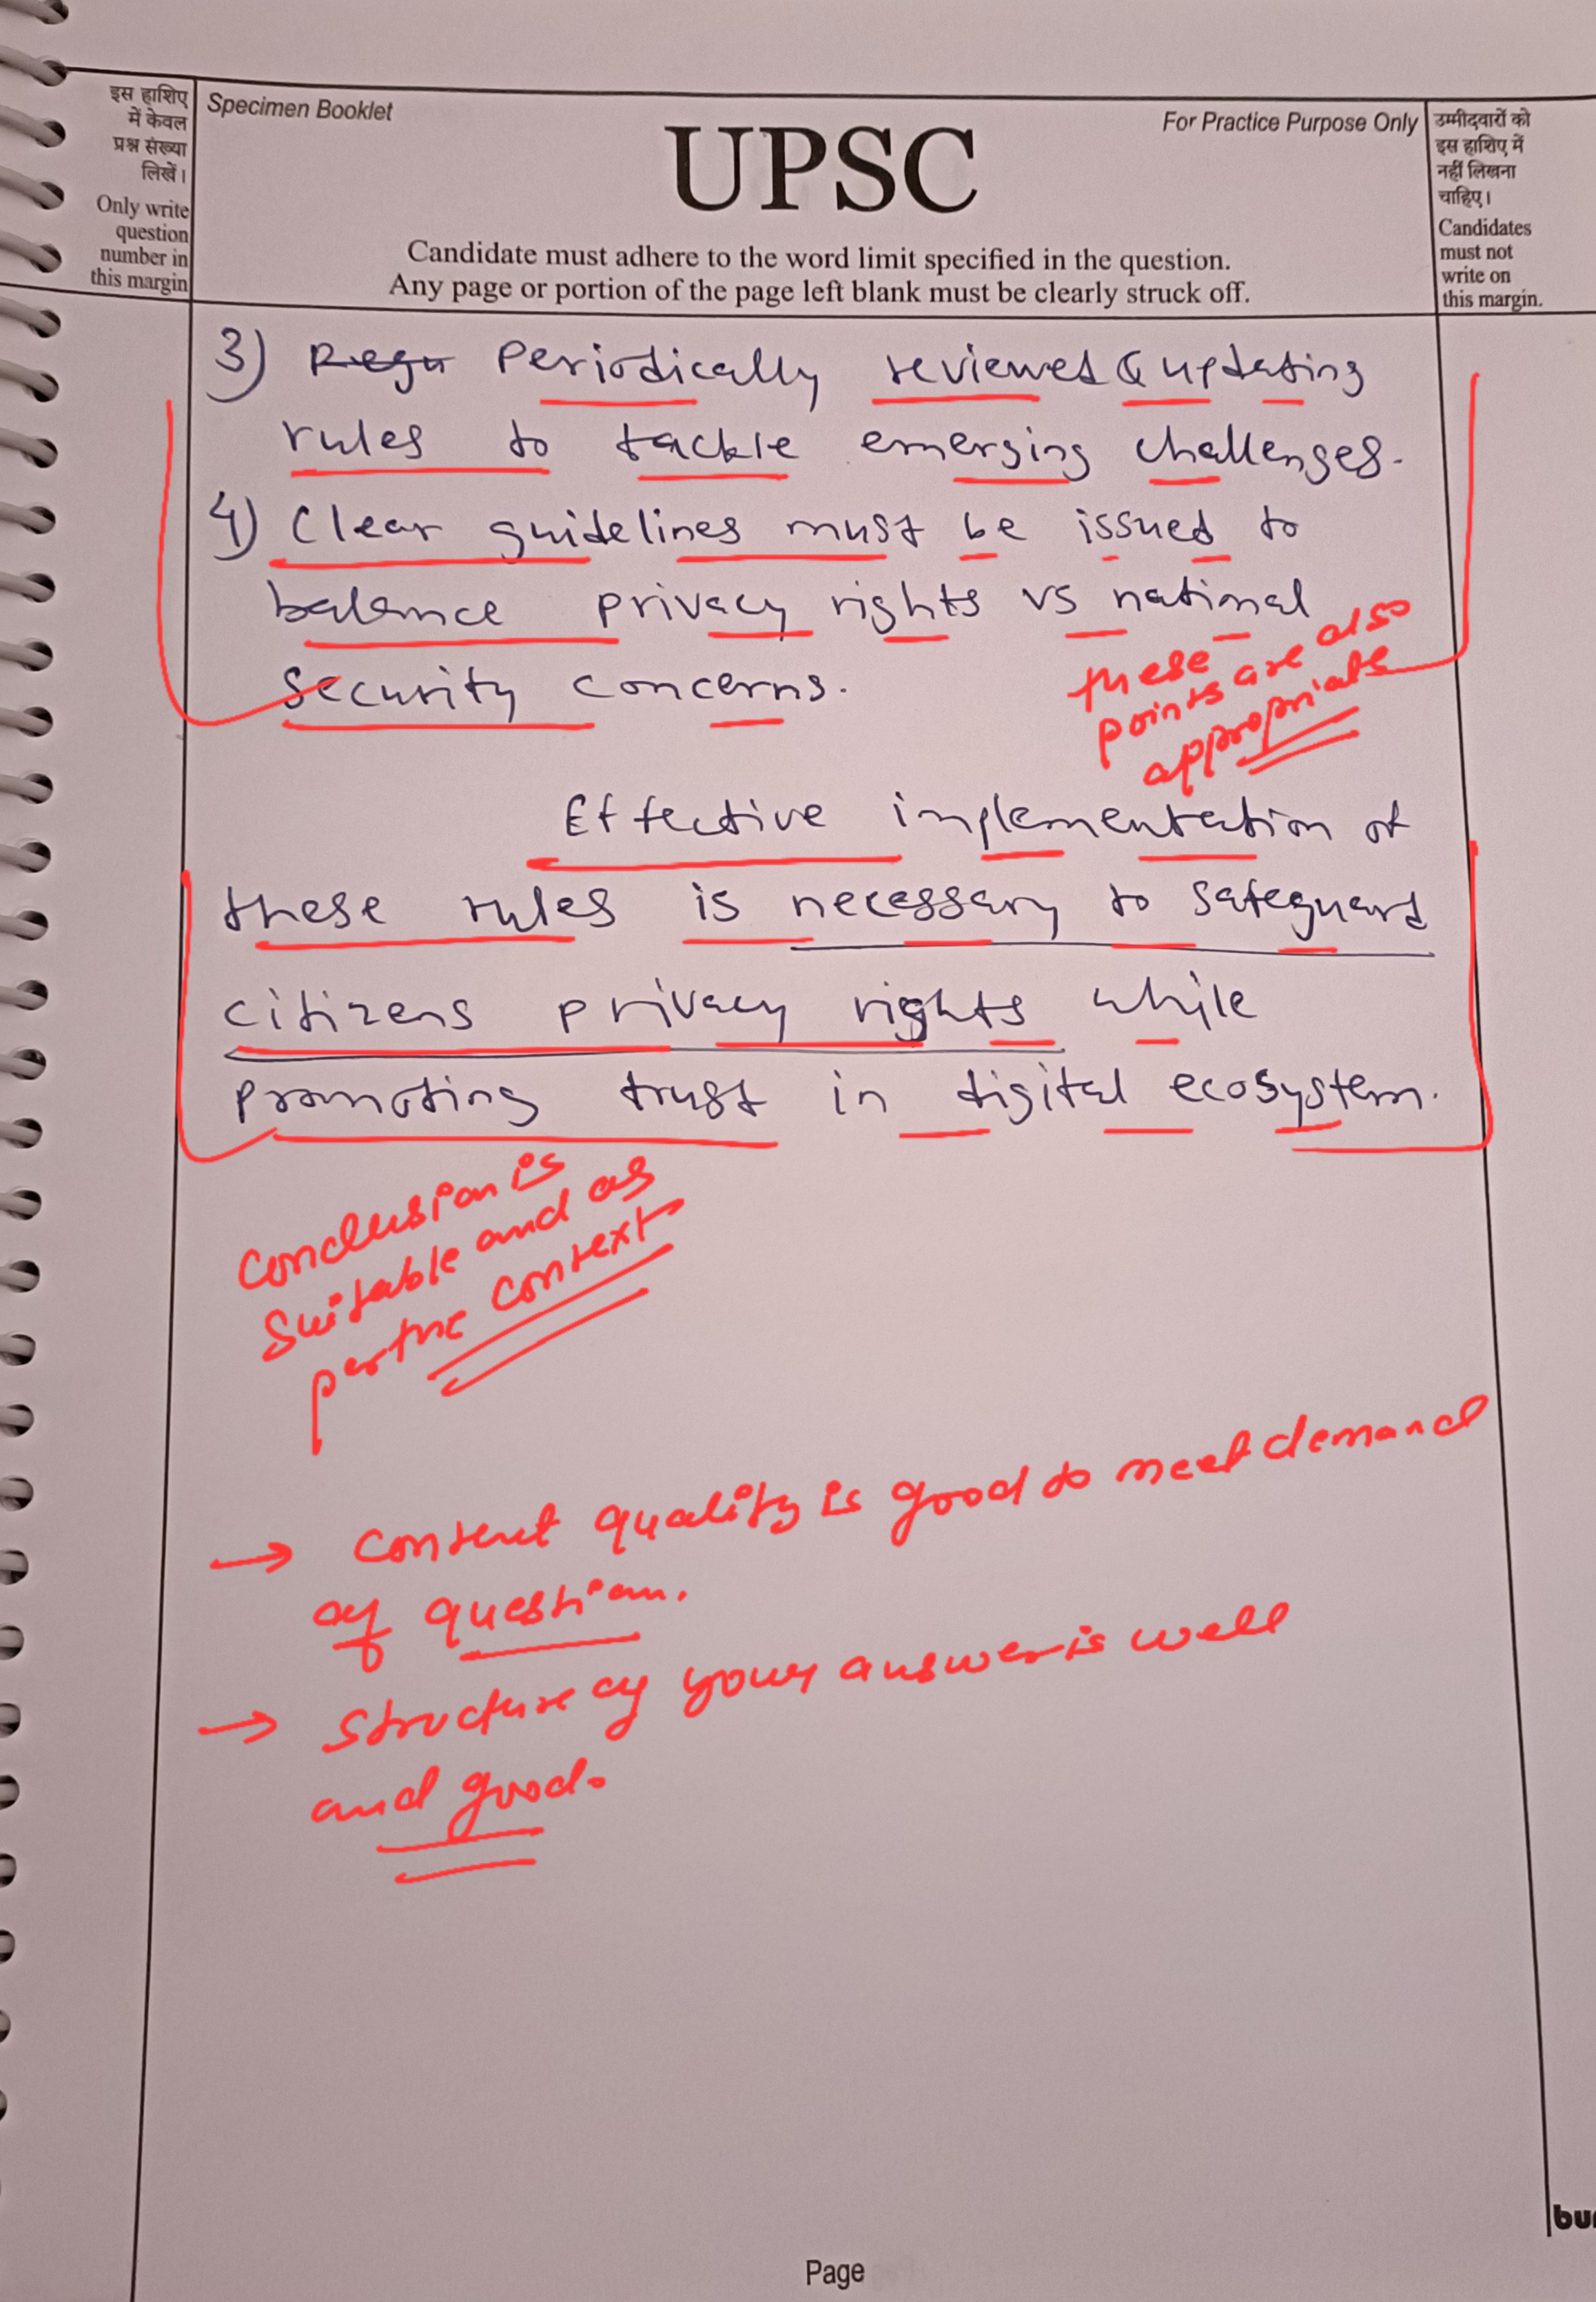 इस हाशिए
में केवल
प्रश्न संख्या
लिखें।
Only write
question
number in
this margin
Specimen Booklet
For Practice Purpose Only
UPSC
Candidate must adhere to the word limit specified in the question.
Any page or portion of the page left blank must be clearly struck off.
उम्मीदवारों को
इस हाशिए में
नहीं लिखना
चाहिए।
Candidates
must not
write on
this margin.
3) Regu Periodically reviewed & updating
rules to tackle emerging challenges.
4) Clear guidelines must be issued to
balance privacy rights vs national
security concerns.
these
points are also
appropriate
Effective implementation of
these rules is necessary to safeguard
citizens privacy rights while
promoting trust in digital ecosystem.
Conclusion is
suitable and as
per the context
→ Content quality is good to meet demand
of question.
→ Structure of your answer is well
and good.
Page